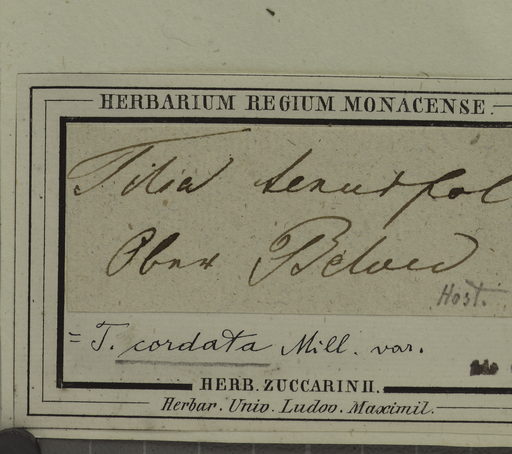 HERBARIUM REGIUM MONACENSE.
Tilia tenuifol
Ober
Host.
= T. cordata Mill. var.
HERB. ZUCCARINII.
Herbar. Univ. Ludov. Maximil.